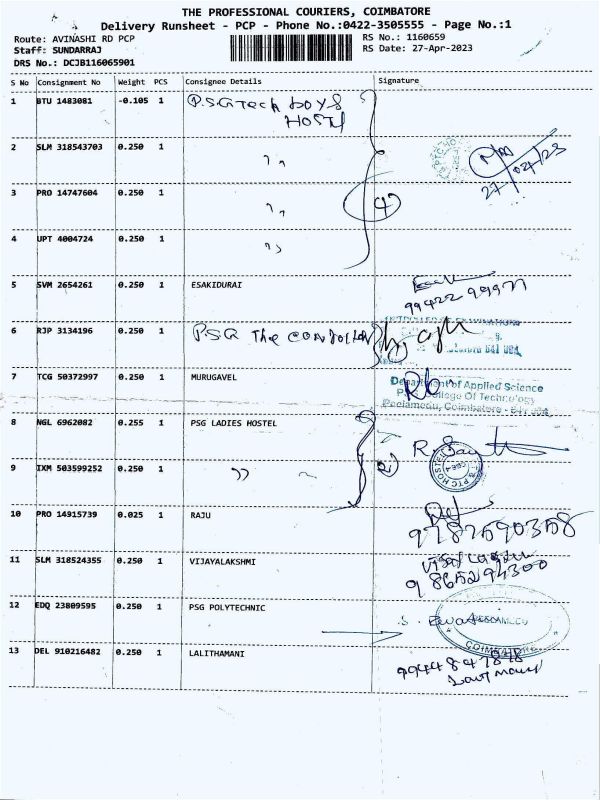 THE PROFESSIONAL COURIERS, COIMBATORE
Delivery Runsheet - PCP - Phone No.:0422-3505555 - Page No.:1
Route: AVINASHI RD PCP RS No.: 1160659
Staff: SUNDARRAJ RS Date: 27-Apr-2023
DRS No.: DCJB116065901
S No Consignment No Weight PCS Consignee Details Signature
1 BTU 1483081 -0.105 1 P.S.G Tech boys
HOSTEl
2 SLM 318543703 0.250 1 〃
27/04/23
3 PRO 14747604 0.250 1 〃
4
4 UPT 4004724 0.250 1 〃
5 SVM 2654261 0.250 1 ESAKIDURAI
99422 99971
6 RJP 3134196 0.250 1 P.S.G The Controller
7 TCG 50372997 0.250 1 MURUGAVEL
Department of Applied Science
PSG College Of Technology
Peelamedu, Coimbatore - 641 004
8 NGL 6962082 0.255 1 PSG LADIES HOSTEL
9 IXM 503599252 0.250 1 〃
2
10 PRO 14915739 0.025 1 RAJU
9787590358
11 SLM 318524355 0.250 1 VIJAYALAKSHMI
9865294300
12 EDQ 23809595 0.250 1 PSG POLYTECHNIC
COIMBATORE
13 DEL 910216482 0.250 1 LALITHAMANI
9944847878